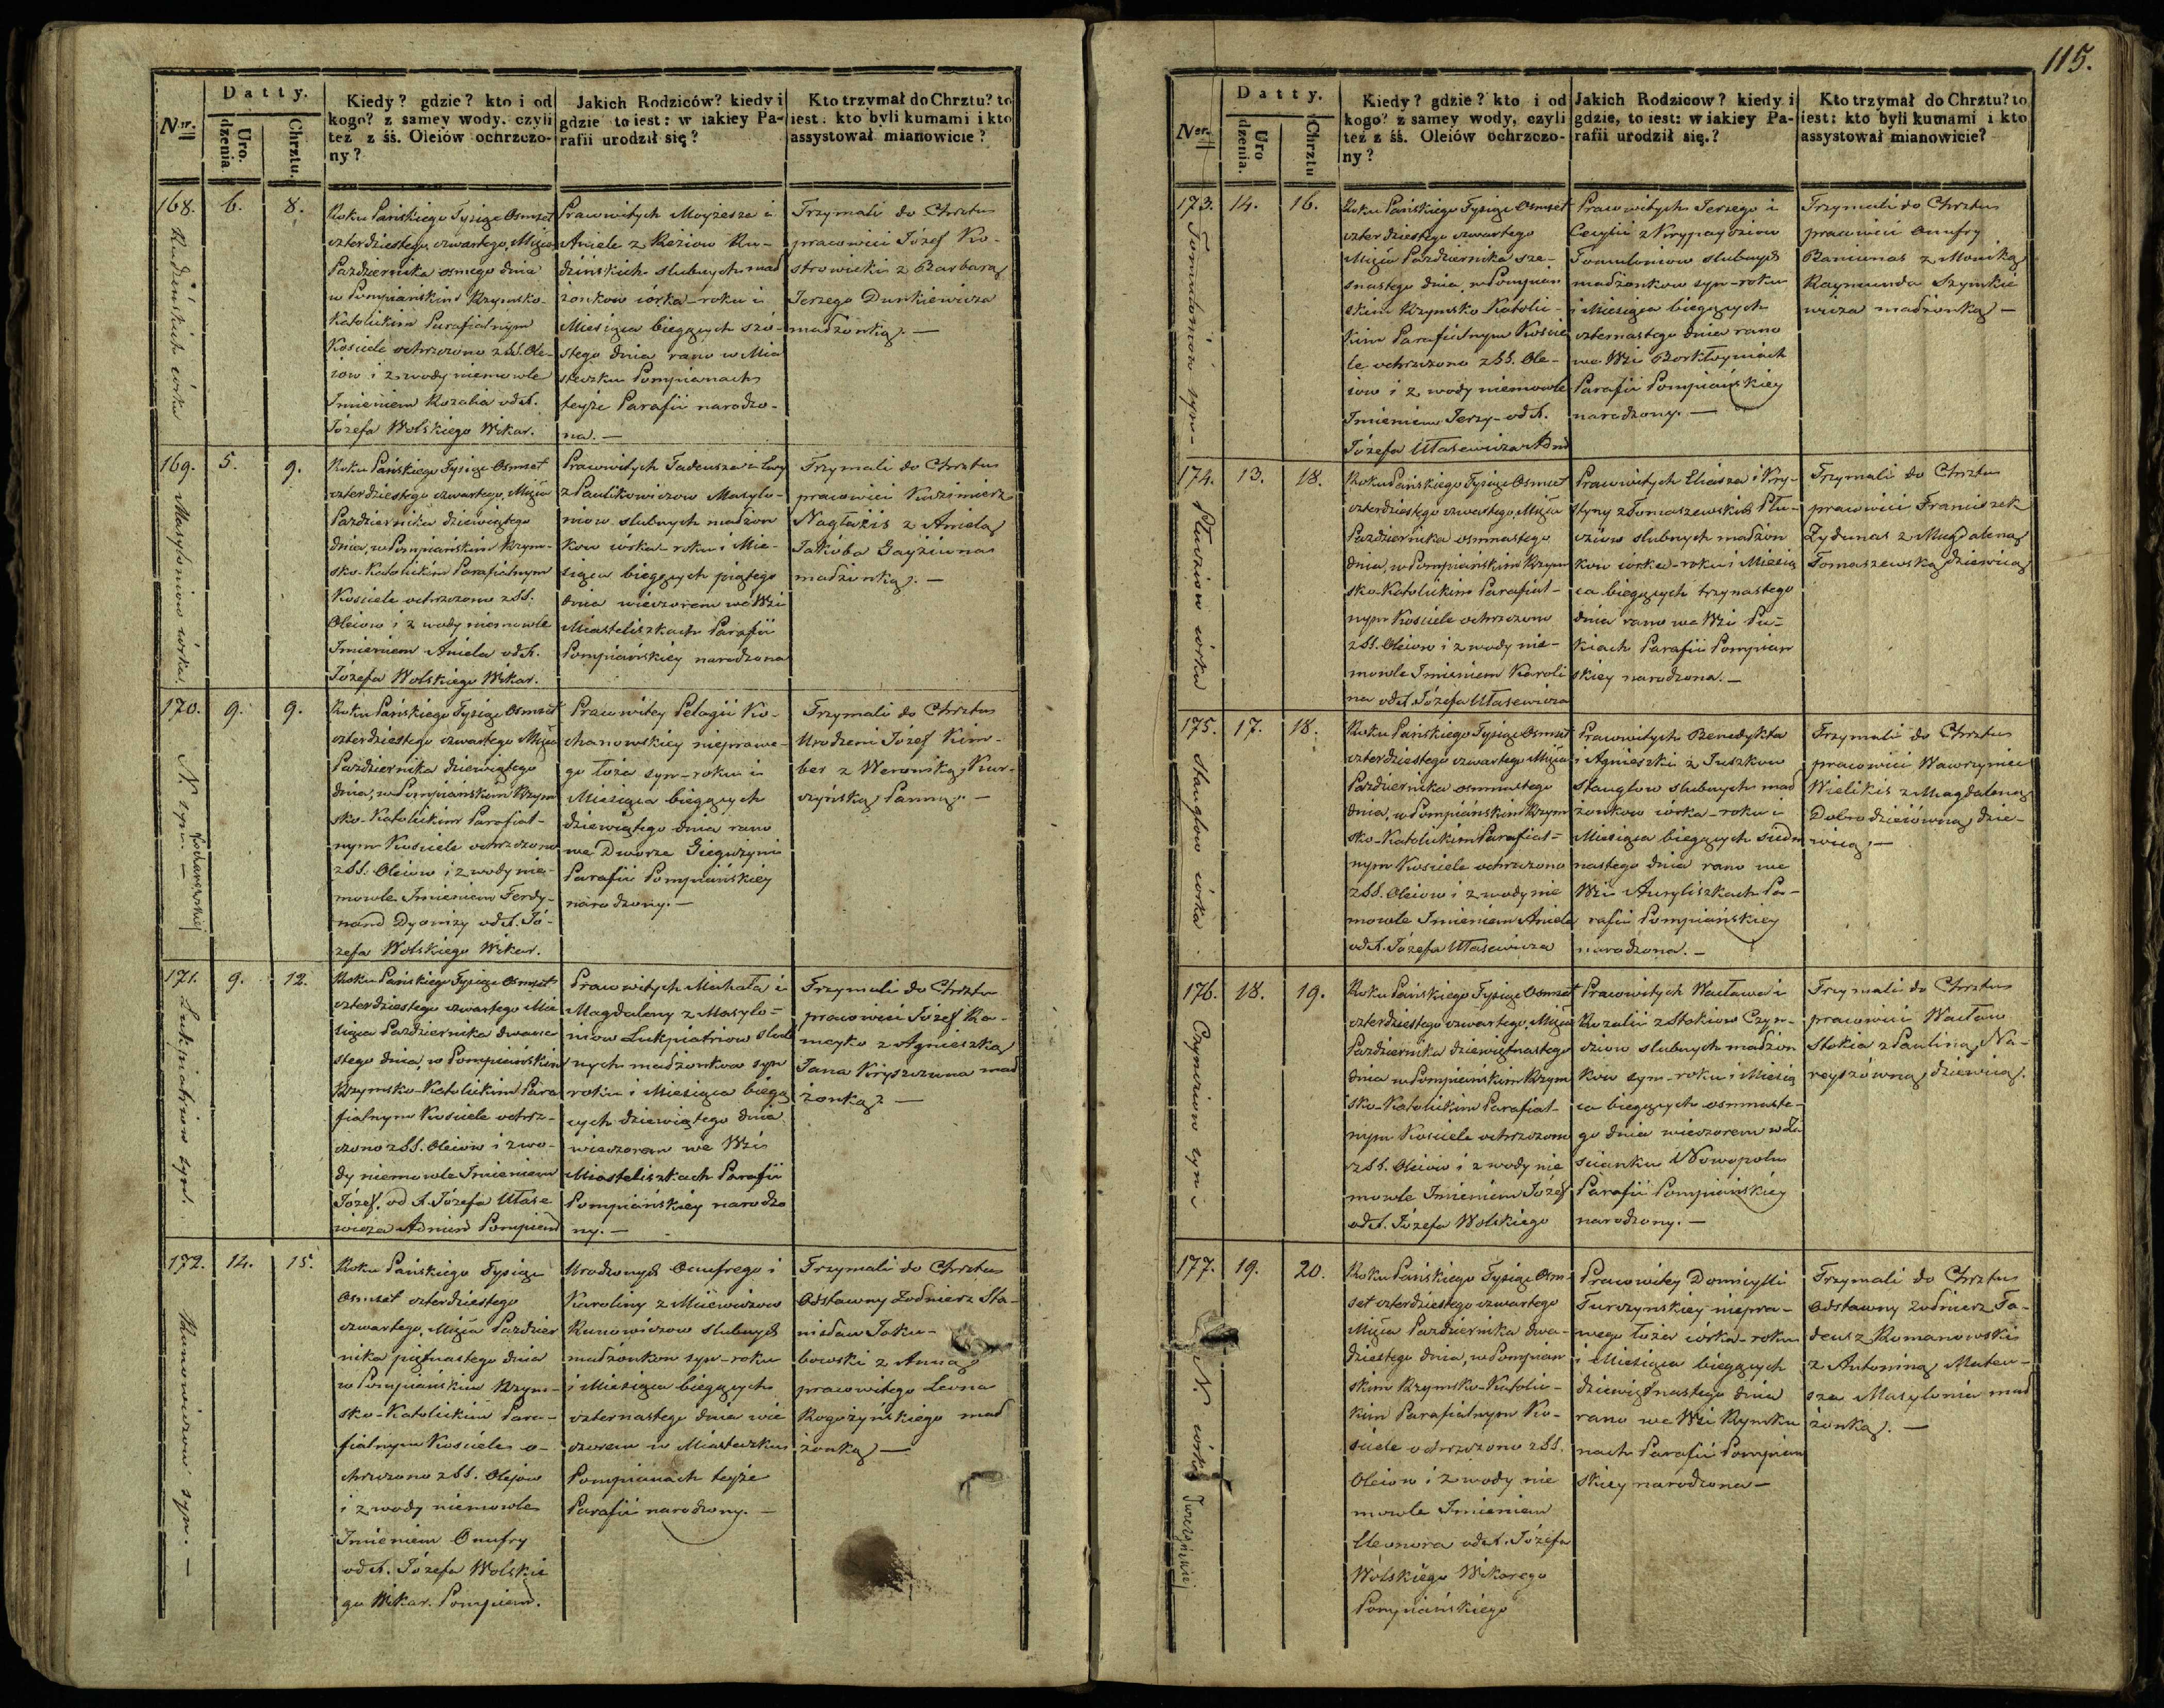 115.
Datty.
Nr.
Uro.
dzenia.
Chrztu.
Kiedy? gdzie? kto i od
kogo? z samey wody, czyli
też z śś. Oleiów ochrzczo-
ny?
Jakich Rodziców? kiedy i
gdzie to iest: w iakiey Pa-
rafii urodził się?
Kto trzymał do Chrztu? to
iest: kto byli kumami i kto
assystował mianowicie?
168.
Rudzińskich córka
6.
8.
Roku Pańskiego Tysiąc Osmset
czterdziestego czwartego, Mięsca
Pazdziernika osmego dnia
w Pompiańskim Rzymsko-
Katolickim Parafialnym
Kosciele ochrzczono z SS. Ole-
iow i z wody niemowle
Imieniem Rozalia od X.
Józefa Wolskiego Wikar.
Prawowitych Moyżesza i
Anieli z Kiżiow Ru-
dzińskich slubnych mał
żonkow córka - roku i
Miesiąca biegących szó-
stego dnia rano w Mia
steczku Pompianach
teyże Parafii narodzo-
na. —
Trzymali do Chrztu
pracowici Józef Ko-
strowicki z Barbarą
Jerzego Dunkiewicza
małżonką. —
169.
Masyloniow córka
5.
9.
Roku Pańskiego Tysiąc Osmset
czterdziestego czwartego, Mięsca
Pazdziernika dziewiątego
dnia, w Pompiańskim Rzym-
sko-Katolickim Parafialnym
Kosciele ochrzczono z SS.
Oleiow i z wody niemowle
Imieniem Aniela od X.
Józefa Wolskiego Wikar.
Prawowitych Tadeusza i Ewy
z Paulikowiczow Masylo-
niow slubnych małżon
kow córka - roku i Mie-
siąca biegących piątego
dnia wieczorem we Wsi
Miasteliszkach Parafii
Pompiańskiey narodzona
Trzymali do Chrztu
pracowici Kazimierz
Nagłażis z Anielą
Jakóba Gayżiunas
małżonką. —
170.
N. syn. —
Kochanowskiej
9.
9.
Roku Pańskiego Tysiąc Osmset
czterdziestego czwartego Mięsca
Pazdziernika dziewiątego
dnia, w Pompianskim Rzym
sko-Katolickim Parafial-
nym Kosciele ochrzczono
z SS. Oleiow i z wody nie-
mowle Imieniem Ferdy-
nand Dyonizy od X. Jó-
zefa Wolskiego Wikar.
Prawowitey Pelagii Ko-
chanowskiey nieprawe-
go łoża syn - roku i
Miesiąca biegących
dziewiątego dnia rano
we Dworze Gieguzyni
Parafii Pompiańskiey
narodzony. —
Trzymali do Chrztu
Urodzeni Józef Kim-
ber z Weroniką Kur-
czyńską Panną. —
171.
Lukpiatriow syn.
9.
12.
Roku Pańskiego Tysiąc Osmset
czterdziestego czwartego Mie
siąca Pazdziernika dwana
stego dnia, w Pompiańskim
Rzymsko-Katolickim Para
fialnym Kosciele ochrz-
czono z SS. Oleiow i z wo-
dy niemowle Imieniem
Józef, od X. Józefa Utase
wicza Admin Pompian
Prawowitych Michała i
Magdaleny z Masylo-
niow Lukpiatriow slub
nych małżonkow syn
roku i Miesiąca biegą
cych dziewiątego dnia
wieczorem we Wsi
Miasteliszkach Parafii
Pompiańskiey narodzo
ny. —
Trzymali do Chrztu
pracowici Józef Ra-
meyko z Agnieszką
Jana Kryszczuna mał
żonką —
172.
Runowiczow syn. —
14.
15.
Roku Pańskiego Tysiąc
Osmset czterdziestego
czwartego, Mięsca Pazdzier
nika piętnastego dnia
w Pompiańskim Rzym-
sko-Katolickim Para-
fialnym Kosciele o-
chrzczono z SS. Olejow
i z wody niemowle
Imieniem Onufry
od X. Józefa Wolskie
go Wikar. Pompian.
Urodzonych Onufrego i
Karoliny z Miewiczow
Runowiczow slubnych
małżonkow syn - roku
i Miesiąca biegących
czternastego dnia wie
czorem w Miasteczku
Pompianach teyże
Parafii narodzony. —
Trzymali do Chrztu
Odstawny Zołnierz Sta-
nisław Jaku-
bowski z Anną
pracowitego Leona
Rogożyńskiego mał
żonką —
Datty.
Ner.
Uro
dzenia.
Chrztu
Kiedy? gdzie? kto i od
kogo? z samey wody, czyli
też z śś. Oleiów ochrzczo-
ny?
Jakich Rodzicow? kiedy i
gdzie, to iest: w iakiey Pa-
rafii urodził się.?
Kto trzymał do Chrztu? to
iest: kto byli kumami i kto
assystował mianowicie?
173.
Tomuloniow syn -
14.
16.
Roku Pańskiego Tysiąc Osmset
czterdziestego czwartego
Mięsca Pazdziernika sze-
snastego dnia, w Pompian
skim Rzymsko Katolic-
kim Parafialnym Koscie
le ochrzczono z SS. Ole-
iow i z wody niemowle
Imieniem Jerzy - od X.
Józefa Utasewicza Adm
Prawowitych Jerzego i
Cecylii z Krypaydziow
Tomuloniow slubnych
małżonkow syn - roku
i Miesiąca biegących
czternastego dnia rano
we Wsi Borkłoyniach
Parafii Pompiańskiey
narodzony. —
Trzymali do Chrztu
pracowici Onufry
Baniunas z Moniką
Raymunda Szymkie
wicza małżonką —
174.
Pluziow córka
13.
18.
Roku Pańskiego Tysiąc Osmset
czterdziestego czwartego, Mięsca
Pazdziernika osmnastego
dnia, w Pompiańskim Rzym
sko-Katolickim Parafial-
nym Kosciele ochrzczono
z SS. Oleiow i z wody nie-
mowle Imieniem Karoli
na od X. Józefa Utasewicza
Prawowitych Eliasza i Kry-
styny z Tomaszewskich Płu-
ziow slubnych małżon
kow córka - roku i Miesią
ca biegących trzynastego
dnia rano we Wsi Pu-
kiach Parafii Pompian
skiey narodzona. —
Trzymali do Chrztu
pracowici Franciszek
Zydunas z Magdaleną
Tomaszewską dziewicą
175.
Stauglow córka
17.
18.
Roku Pańskiego Tysiąc Osmset
czterdziestego czwartego Mięsca
Pazdziernika osmnastego
dnia, w Pompiańskim Rzym
sko-Katolickim Parafial-
nym Kosciele ochrzczono
z SS. Oleiow i z wody nie
mowle Imieniem Aniela
od X. Józefa Utasewicza
Prawowitych Benedykta
i Agnieszki z Juszkow
Stauglow slubnych mał
żonkow córka - roku i
Miesiąca biegących siedm
nastego dnia rano we
Wsi Auryliszkach Pa-
rafii Pompiańskiey
narodzona. —
Trzymali do Chrztu
pracowici Wawrzyniec
Wielikis z Magdaleną
Dobrodzieiówną dzie-
wicą —
176.
Czynziow syn
18.
19.
Roku Pańskiego Tysiąc Osmset
czterdziestego czwartego, Mięsca
Pazdziernika dziewiętnastego
dnia w Pompiańskim Rzym
sko-Katolickim Parafial-
nym Kosciele ochrzczono
z SS. Oleiow i z wody nie
mowle Imieniem Józef
od X. Józefa Wolskiego
Prawowitych Wacława i
Rozalii z Stokiow Czyn-
ziow slubnych małżon
kow syn - roku i Miesią
ca biegących osmnaste-
go dnia wieczorem w Za
scianku Nowopolu
Parafii Pompiańskiey
narodzony. —
Trzymali do Chrztu
pracowici Wacław
Stokia z Pauliną Na-
reyszówną dziewicą.
177.
N. córka
Turczyńskiej
19.
20.
Roku Pańskiego Tysiąc Osm-
set czterdziestego czwartego
Mięsca Pazdziernika dwu-
dziestego dnia, w Pompian
skim Rzymsko-Katolic-
kim Parafialnym Ko-
sciele ochrzczono z SS.
Oleiow i z wody nie
mowle Imieniem
Eleonora od X. Józefa
Wolskiego Wikarego
Pompiańskiego
Prawowitey Domicylli
Turczynskiey niepra-
wego łoża córka - roku
i Miesiąca biegących
dziewiętnastego dnia
rano we Wsi Rymku
nach Parafii Pompian
skiey narodzona —
Trzymali do Chrztu
Odstawny Zołnierz Ta-
deusz Romanowski
z Antoniną Mateu-
sza Masylonia mał
żonką. —